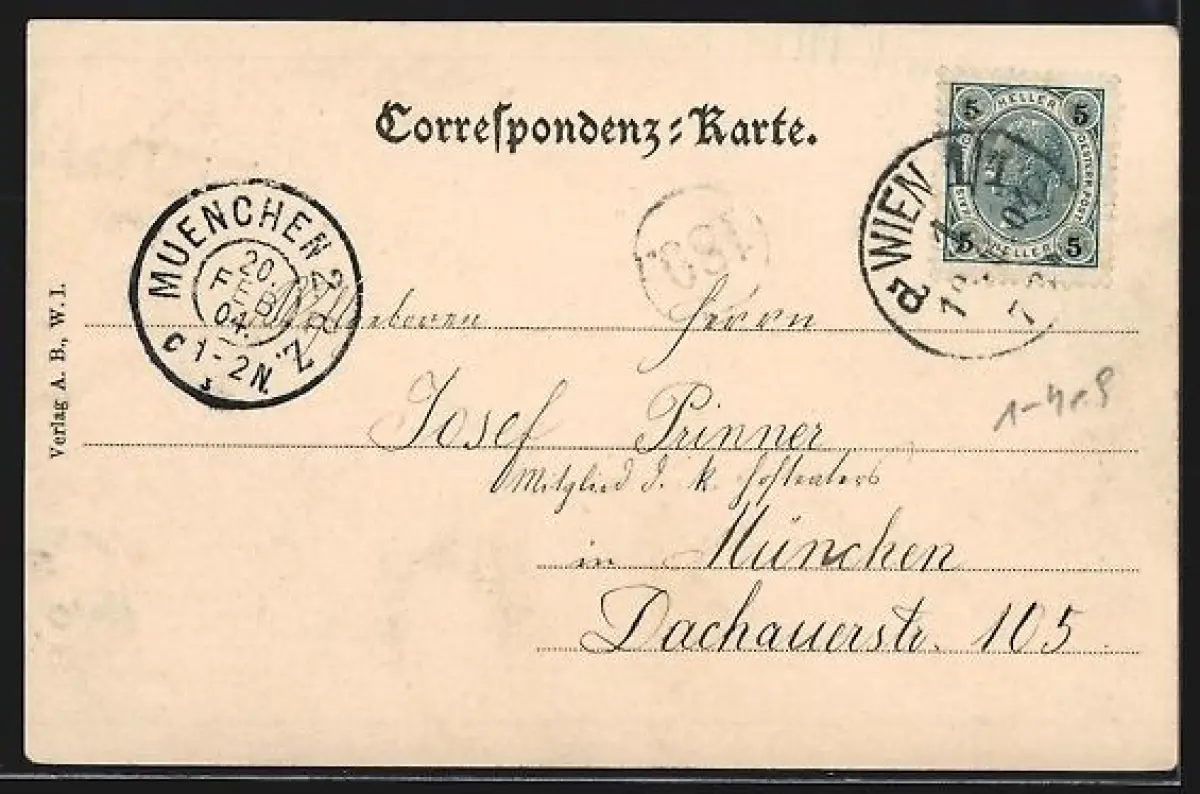 Correspondenz-Karte.
5 HELLER 5
5 HELLER 5
WIEN 1/1
MUENCHEN 2 B.Z.
20.
FEB
04.
1-2N.
C
180
Verlag A. B., W. I.
Wohlgeboren Herrn
Josef Prinner
Mitglied d. k. Hofteaters
in München
Dachauerstr. 105.